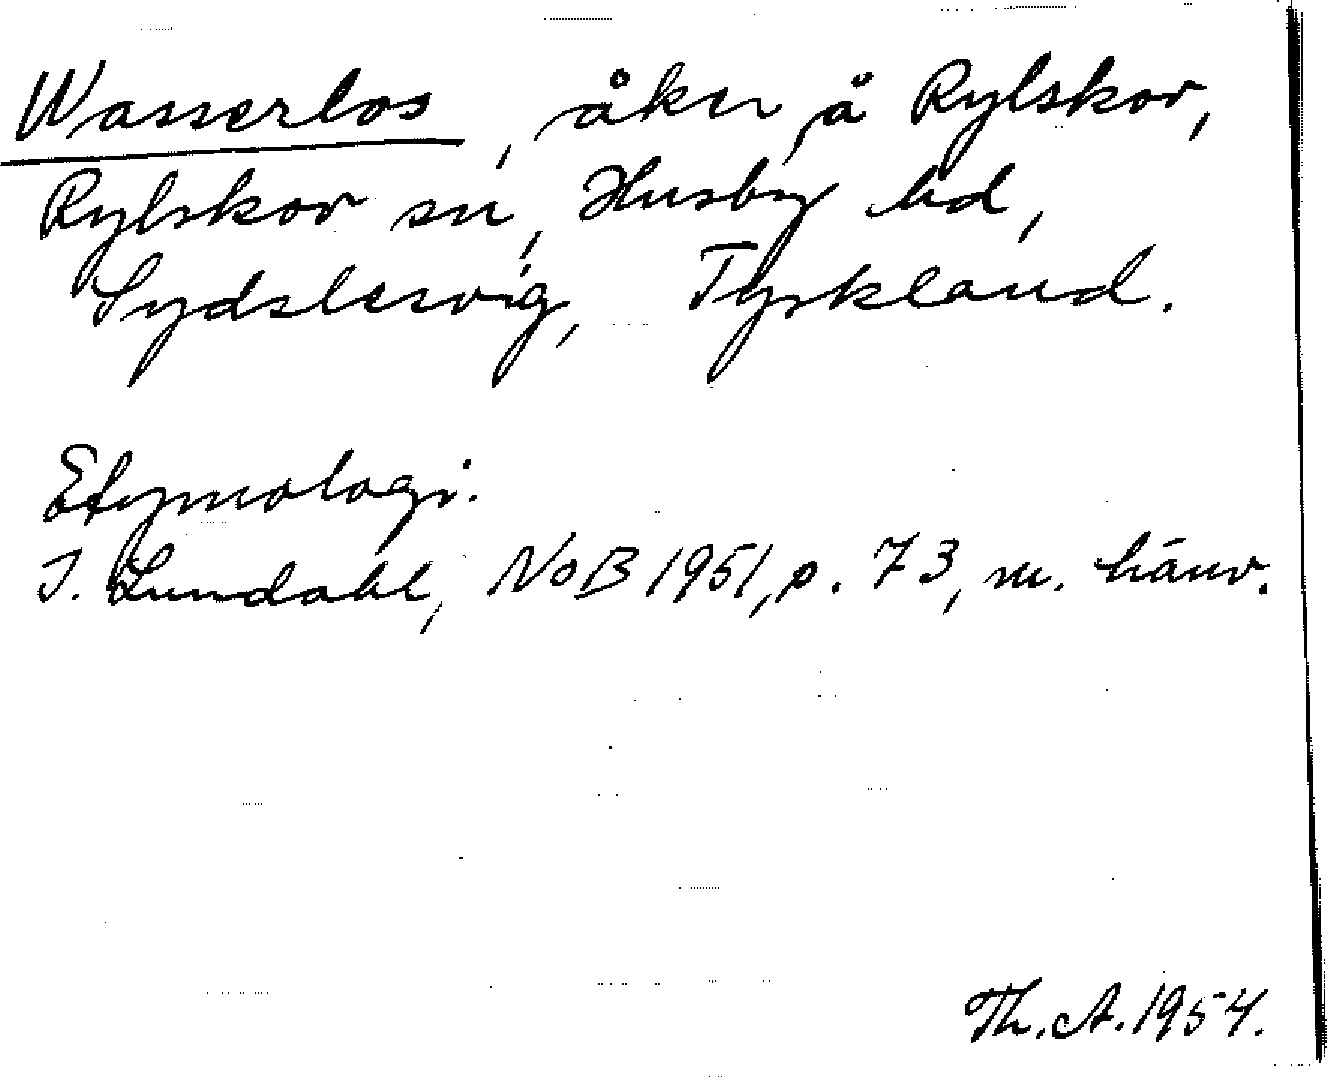 Wasserlos, åker å Rylskov,
Rylskov sn, Husby hd,
Sydslesvig, Tyskland.
Etymologi:
I. Lundahl, NoB 1951, p. 73, m. hänv.
Th. A. 1954.